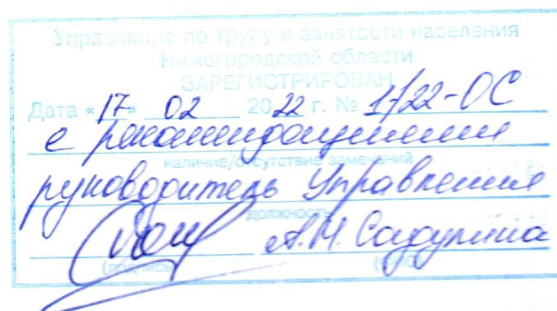 Управление по труду и занятости населения
Нижегородской области
ЗАРЕГИСТРИРОВАН
Дата «17» 02 2022 г. № 1/22-ОС
с рекомендациями
наличие/отсутствие замечаний
руководитель Управления
должность
А.М.
(подпись)